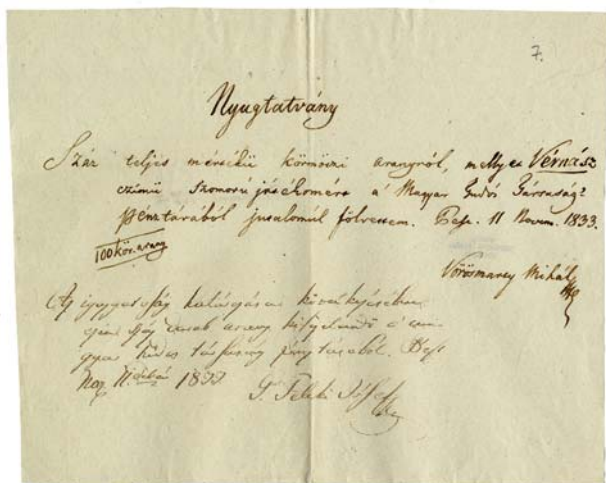 7.
Nyugtatvány
Száz teljes mértékű körmöczi aranyról, mellyet Vérnász
czimű szomorújátékomért a' Magyar Tudós Társaság'
pénztárából jutalomúl fölvettem. Pest. 11 Novem. 1833.
100 kör. arany
Vörösmarty Mihály
Az igazgatóság határozása következésében
ezen száz darab arany kifizetendő a' ma
gyar tudós társaság pénztárából. Pest
Nov. 11. 1833.
G. Teleki József